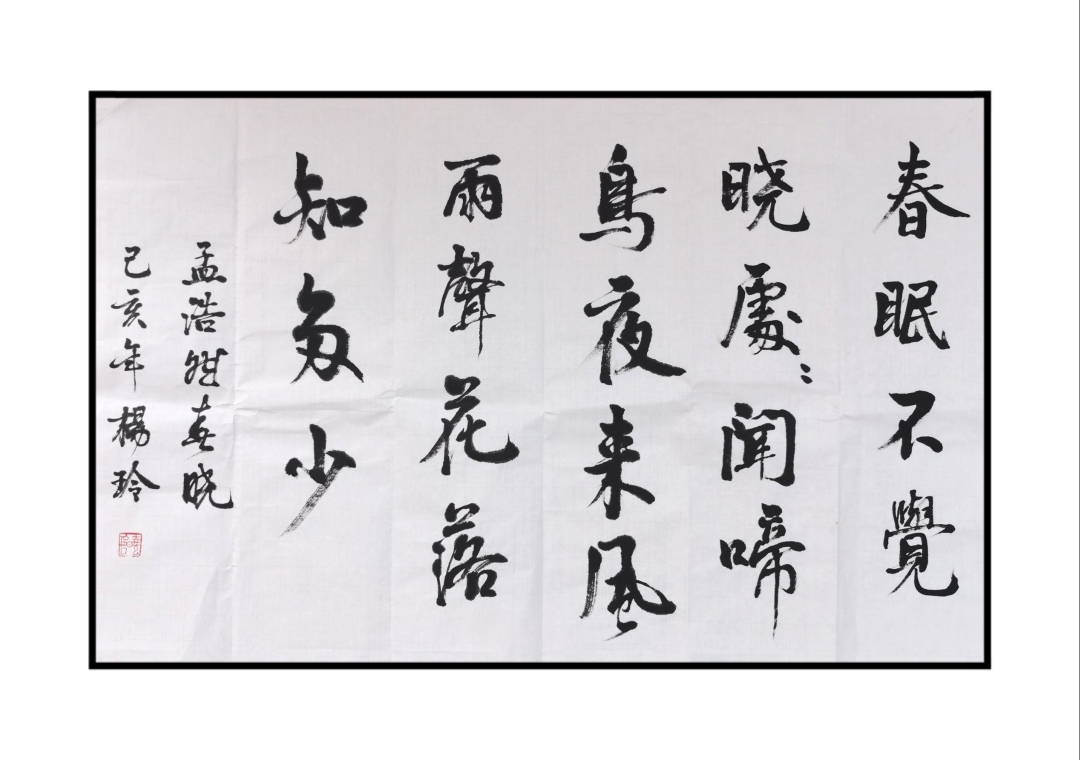 春眠不覺
晓處〻聞啼
鳥夜来风
雨聲花落
知多少
孟浩然春晓
己亥年楊玲